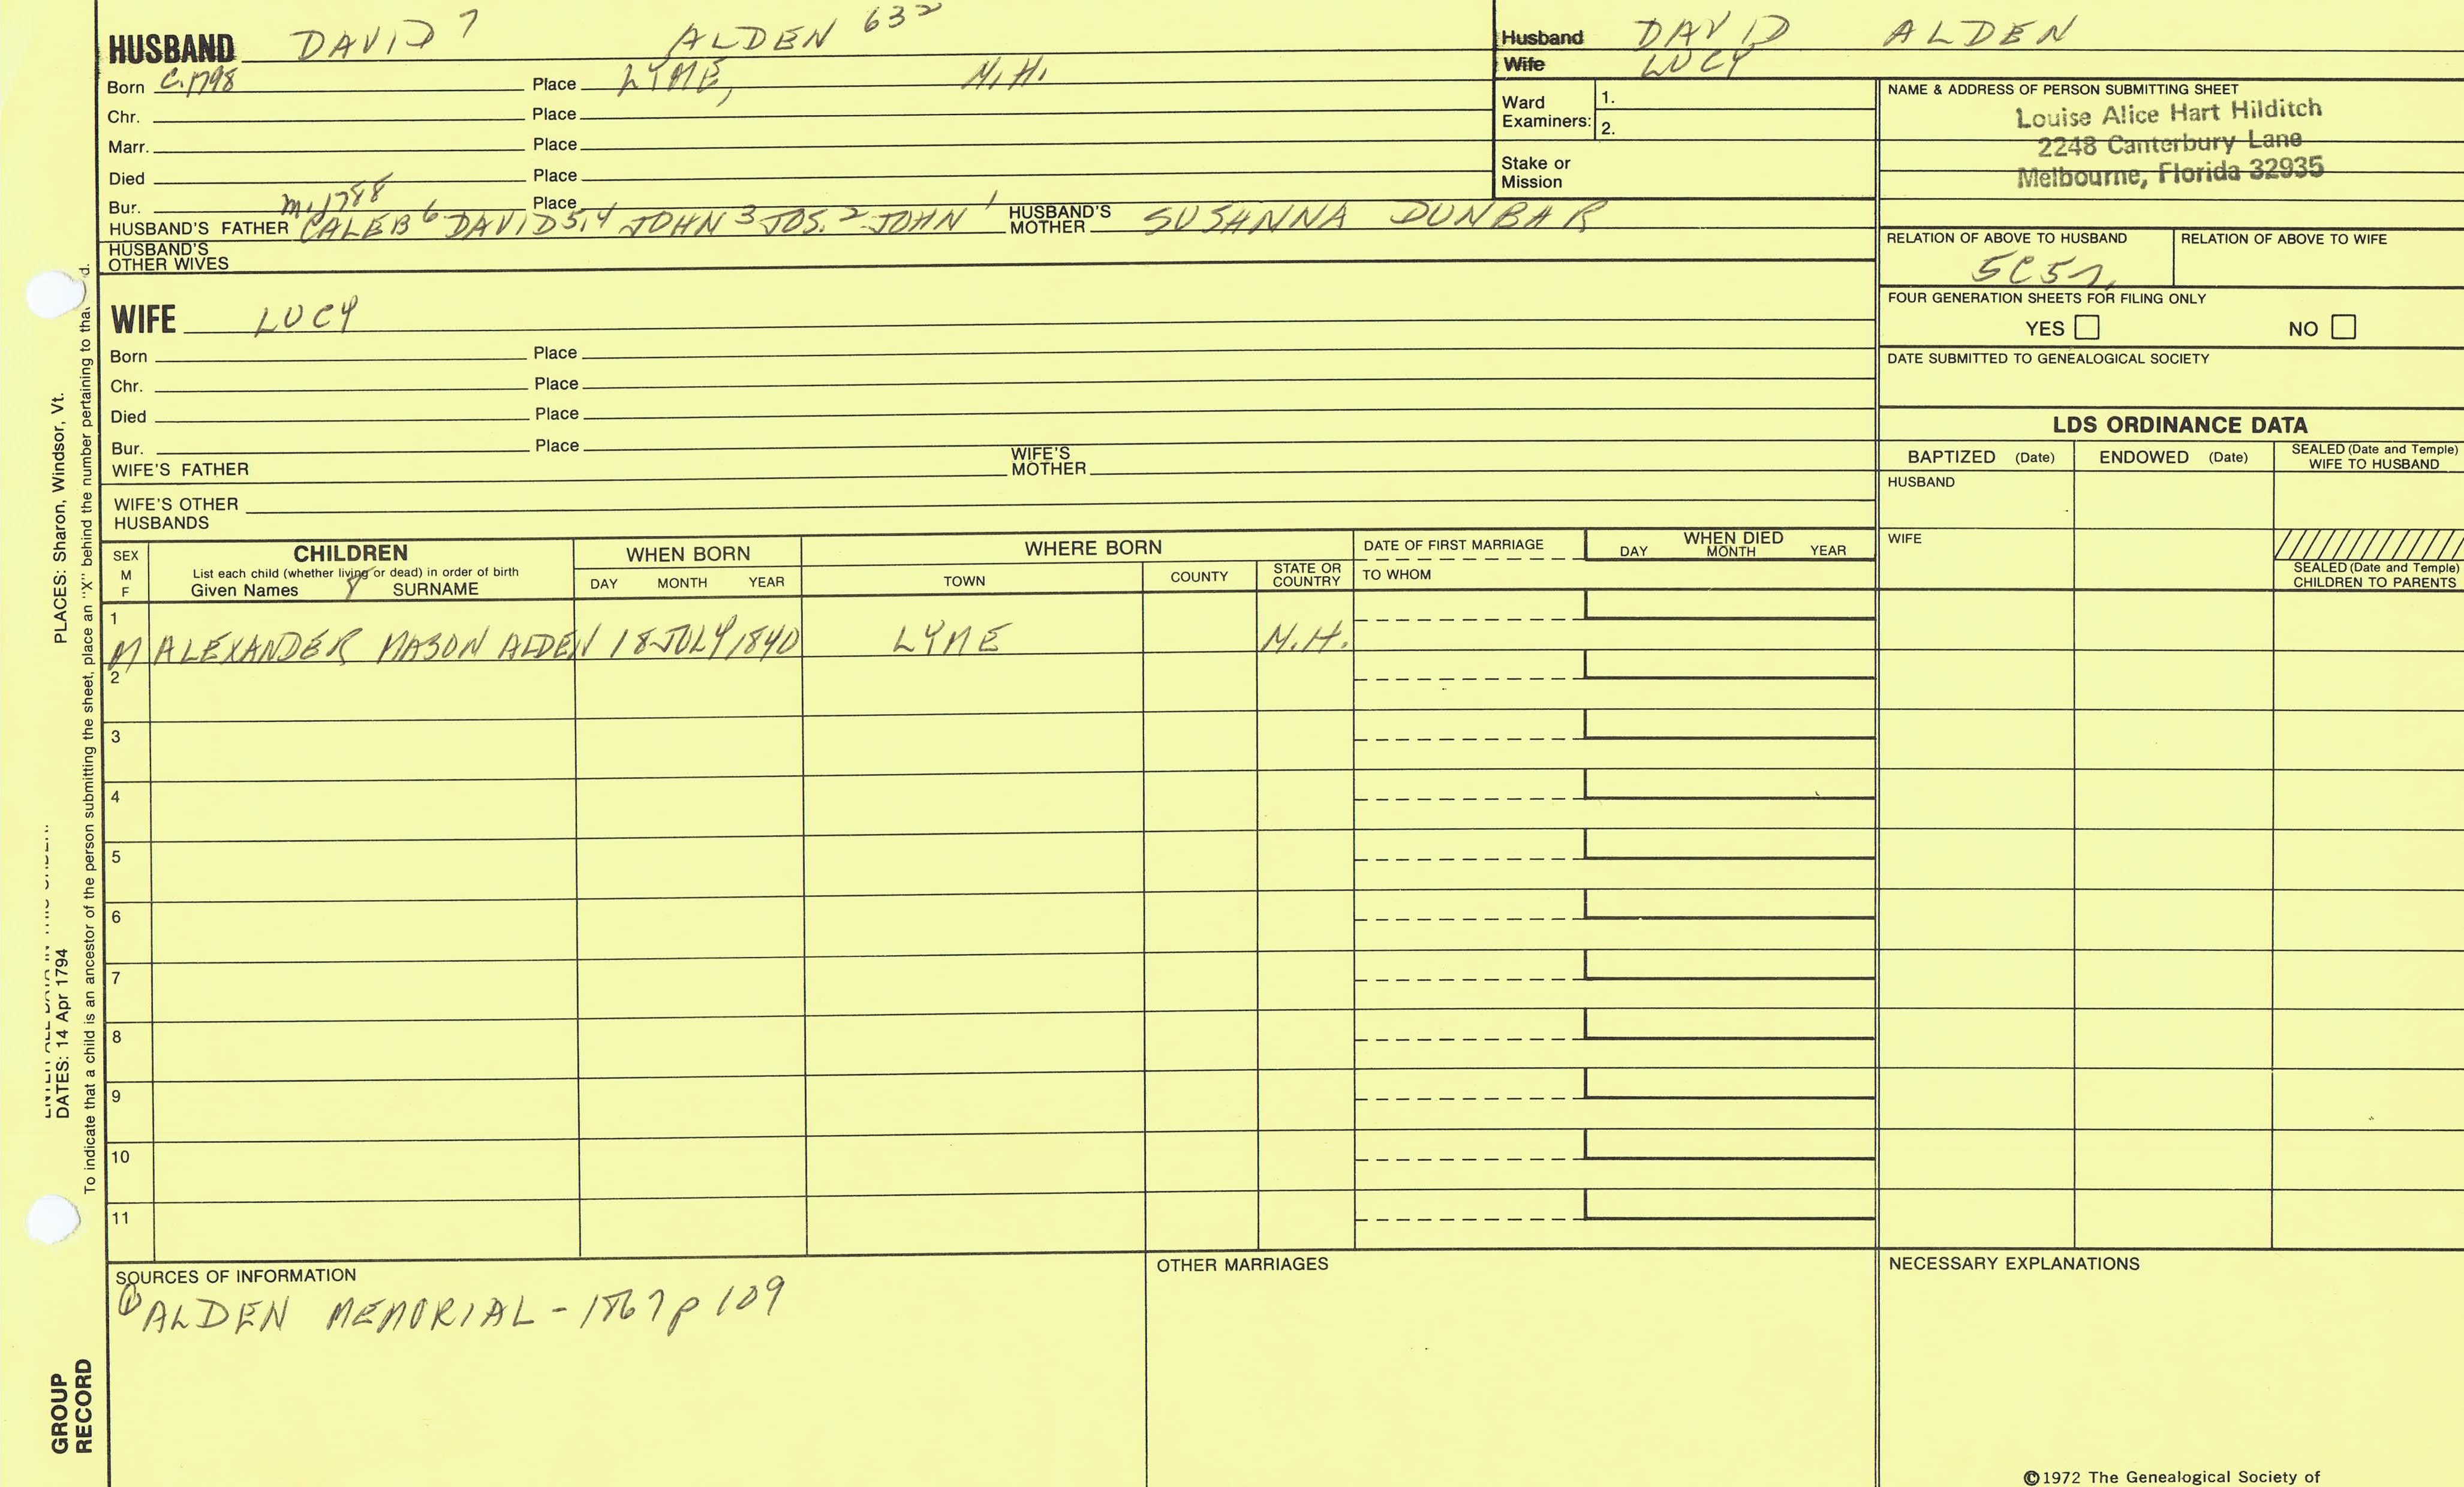 HUSBAND DAVID 7 ALDEN 632
Born C.1798 Place LYME, N.H.
Chr. Place
Marr. Place
Died Place
Bur. Place
m-1788
HUSBAND'S FATHER CALEB 6 DAVID 5,4 JOHN 3 JOS. 2 JOHN 1 HUSBAND'S MOTHER SUSANNA DUNBAR
HUSBAND'S OTHER WIVES
WIFE LUCY
Born Place
Chr. Place
Died Place
Bur. Place
WIFE'S FATHER WIFE'S MOTHER
WIFE'S OTHER HUSBANDS
Husband DAVID ALDEN
Wife LUCY
Ward Examiners: 1.
2.
Stake or Mission
NAME & ADDRESS OF PERSON SUBMITTING SHEET
Louise Alice Hart Hilditch
2248 Canterbury Lane
Melbourne, Florida 32935
RELATION OF ABOVE TO HUSBAND RELATION OF ABOVE TO WIFE
FOUR GENERATION SHEETS FOR FILING ONLY
YES NO
DATE SUBMITTED TO GENEALOGICAL SOCIETY
LDS ORDINANCE DATA
BAPTIZED (Date) ENDOWED (Date) SEALED (Date and Temple) WIFE TO HUSBAND
HUSBAND
WIFE
SEALED (Date and Temple) CHILDREN TO PARENTS
SEX M F
CHILDREN
List each child (whether living or dead) in order of birth
Given Names 8 SURNAME
WHEN BORN
DAY MONTH YEAR
WHERE BORN
TOWN COUNTY STATE OR COUNTRY
DATE OF FIRST MARRIAGE
TO WHOM
WHEN DIED
DAY MONTH YEAR
1
M ALEXANDER MASON ALDEN 18 JULY 1840 LYME N.H.
2
3
4
5
6
7
8
9
10
11
SOURCES OF INFORMATION
① ALDEN MEMORIAL - 1867 p 109
OTHER MARRIAGES
NECESSARY EXPLANATIONS
©1972 The Genealogical Society of
PLACES: Sharon, Windsor, Vt.
DATES: 14 Apr 1794
To indicate that a child is an ancestor of the person submitting the sheet, place an "X" behind the number pertaining to
GROUP
RECORD